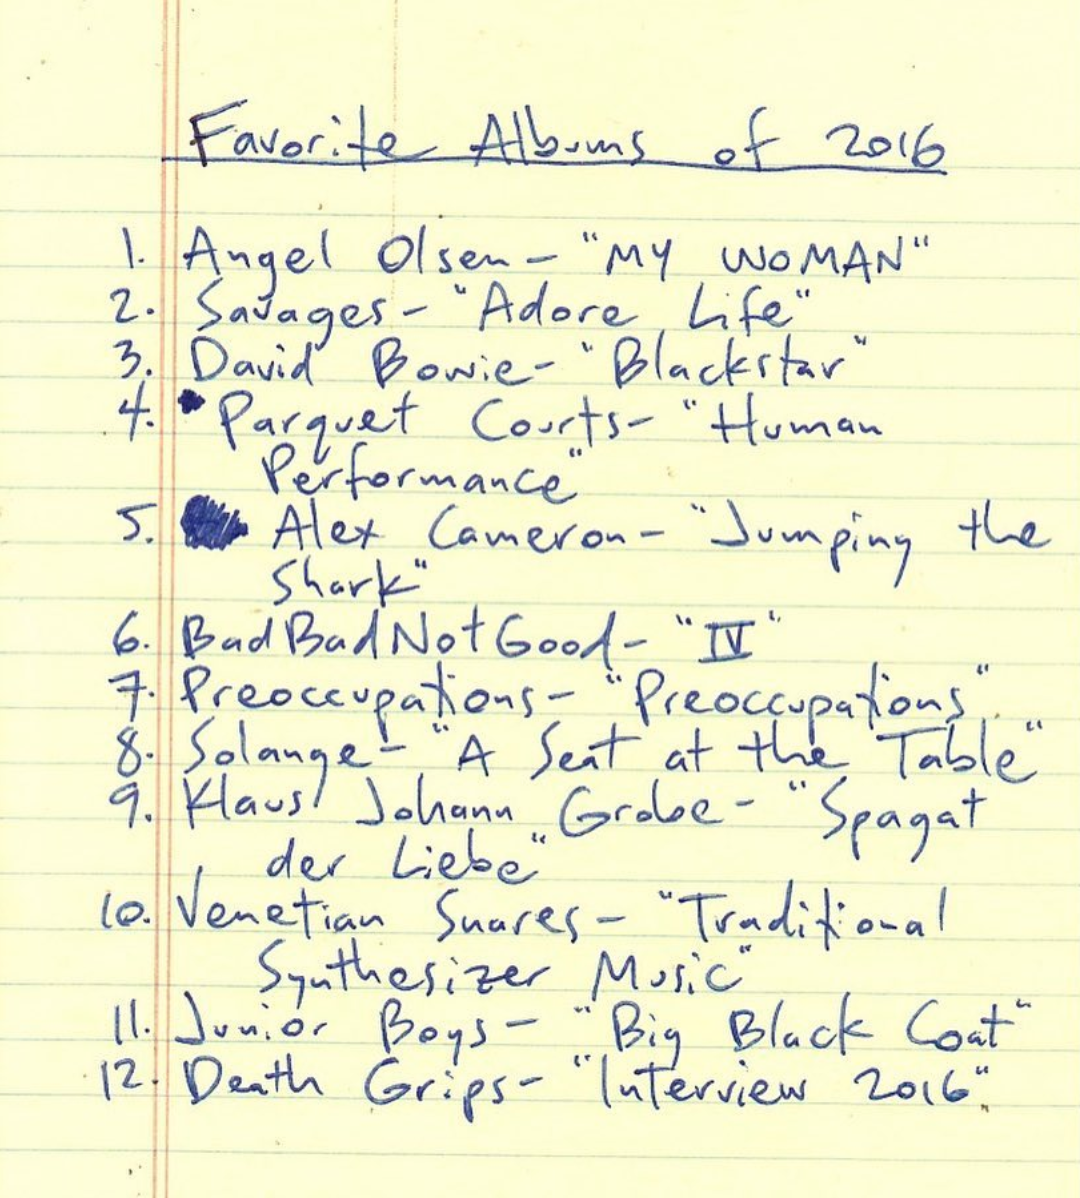 Favorite Albums of 2016
1. Angel Olsen - "MY WOMAN"
2. Savages - "Adore Life"
3. David Bowie - "Blackstar"
4. Parquet Courts - "Human
Performance"
5. Alex Cameron - "Jumping the
Shark"
6. BadBadNotGood - "IV"
7. Preoccupations - "Preoccupations"
8. Solange - "A Seat at the Table"
9. Klaus Johann Grobe - "Spagat
der Liebe"
10. Venetian Snares - "Traditional
Synthesizer Music"
11. Junior Boys - "Big Black Coat"
12. Death Grips - "Interview 2016"